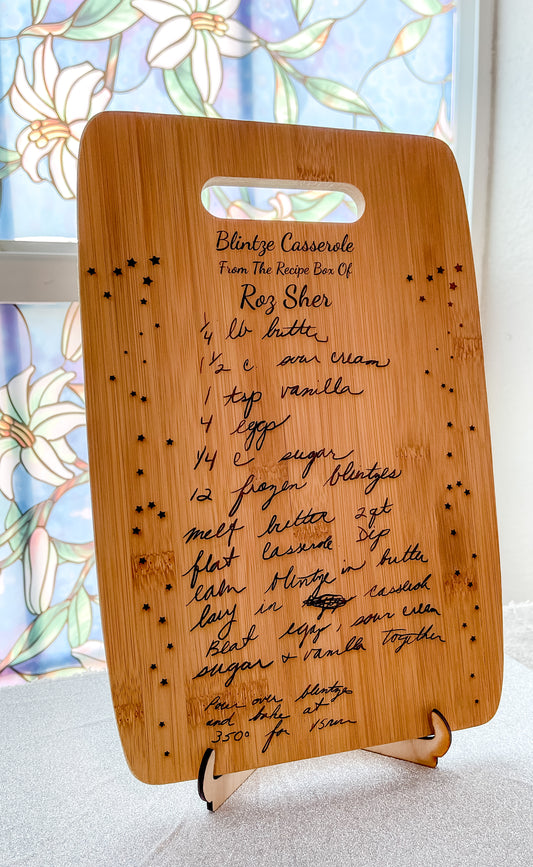 Blintze Casserole
From The Recipe Box Of
Roz Sher
1/4 lb butter
1 1/2 c sour cream
1 tsp vanilla
4 eggs
1/4 c sugar
12 frozen blintzes
melt butter 2qt
flat casserole Dip
each blintze in butter
lay in casserole
Beat eggs, sour cream
sugar + vanilla together
Pour over blintzes
and bake at
350° for